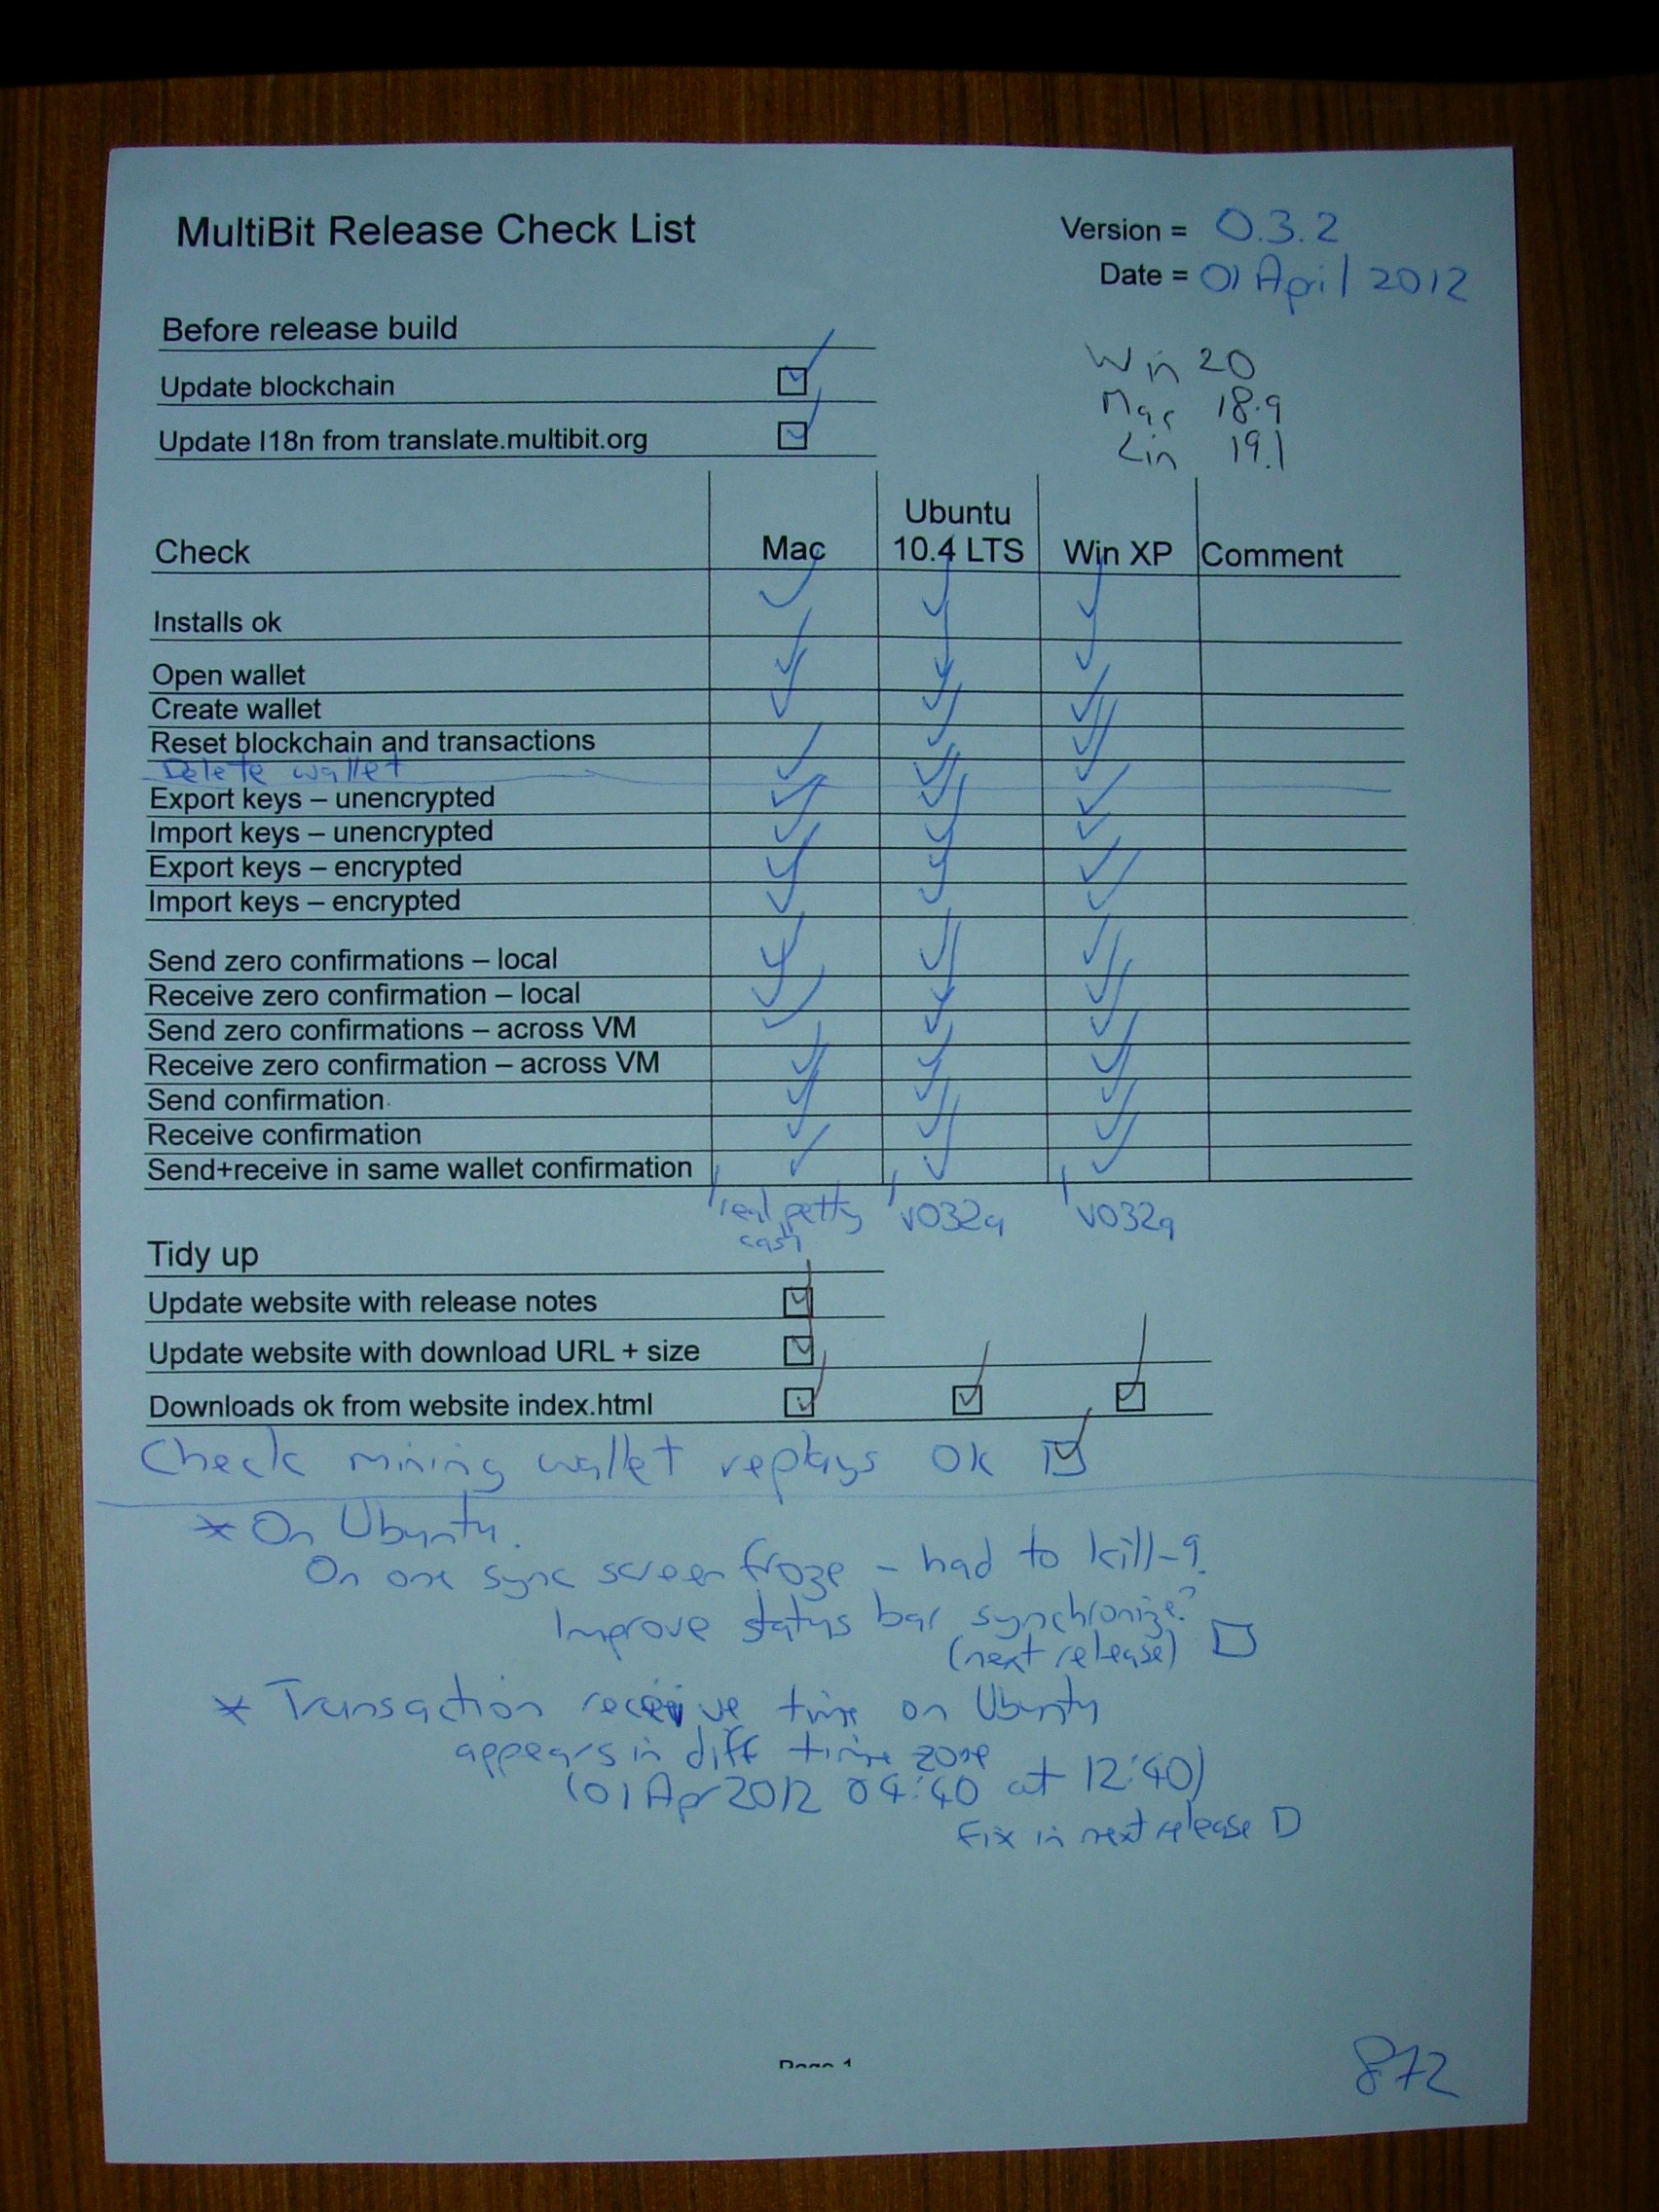 MultiBit Release Check List
Version = 0.3.2
Date = 01 April 2012
Before release build
Update blockchain
Update I18n from translate.multibit.org
Win 20
Mac 18.9
Lin 19.1
Check Mac Ubuntu 10.4 LTS Win XP Comment
Installs ok
Open wallet
Create wallet
Reset blockchain and transactions
Delete wallet
Export keys – unencrypted
Import keys – unencrypted
Export keys – encrypted
Import keys – encrypted
Send zero confirmations – local
Receive zero confirmation – local
Send zero confirmations – across VM
Receive zero confirmation – across VM
Send confirmation
Receive confirmation
Send+receive in same wallet confirmation
real petty cash v032a v032a
Tidy up
Update website with release notes
Update website with download URL + size
Downloads ok from website index.html
Check mining wallet replays OK
* On Ubuntu.
On one sync screen froze – had to kill -9.
Improve status bar synchronize?
(next release)
* Transaction receive time on Ubuntu
appears in diff time zone
(01 Apr 2012 04:40 at 12:40)
Fix in next release
Page 1
872